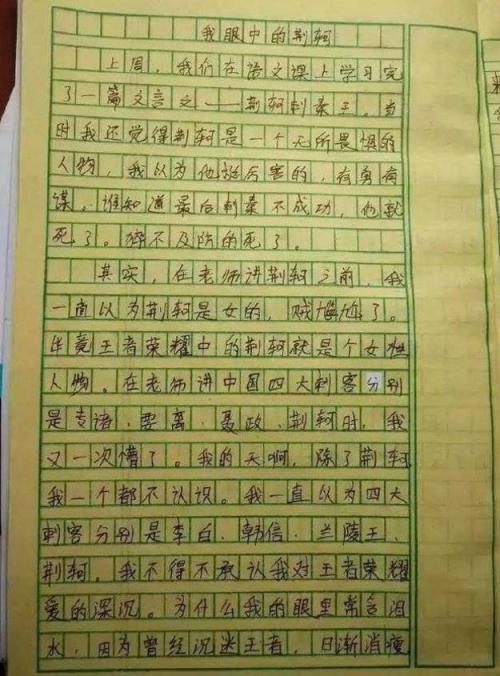 我眼中的荆轲
上周，我们在语文课上学习完
了一篇文言文——荆轲刺秦王。当
时我还觉得荆轲是一个无所畏惧的
人物，我以为他挺厉害的，有勇有
谋。谁知道最后刺秦不成功，他就
死了。猝不及防的死了。
其实，在老师讲荆轲之前，我
一直以为荆轲是女的，贼尴尬了。
毕竟王者荣耀中的荆轲就是个女性
人物。在老师讲中国四大刺客分别
是专诸、要离、聂政、荆轲时，我
又一次懵了。我的天啊，除了荆轲
我一个都不认识。我一直以为四大
刺客分别是李白、韩信、兰陵王、
荆轲。我不得不承认我对王者荣耀
爱的深沉。为什么我的眼里常含泪
水，因为曾经沉迷王者，日渐消瘦